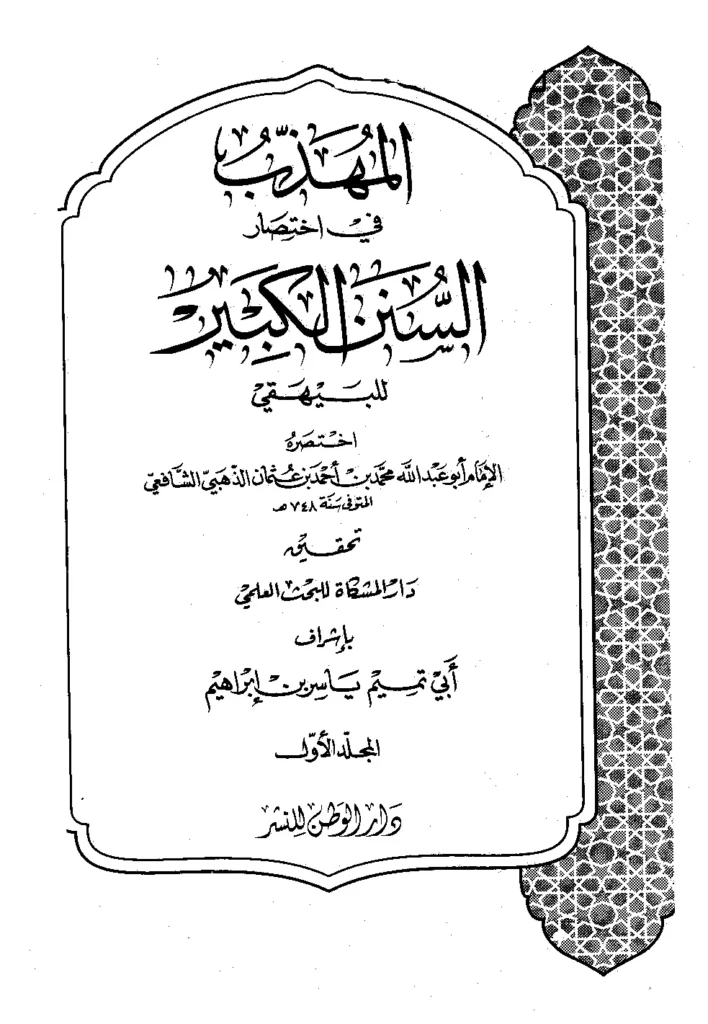 المُهَذَّبُ
في اختِصَار
السُّنَن الكَبِير
للبيهقي
اختصرَهُ
الإمَام أبو عبد الله محمد بن أحمد بن عثمان الذهبيّ الشافعيّ
المتوفى سَنة ٧٤٨ هـ
تحقيق
دَار المشكاة للبحث العلمي
بإشراف
أبي تميم ياسر بن إبراهيم
المجلد الأوّل
دَار الوطن للنشر